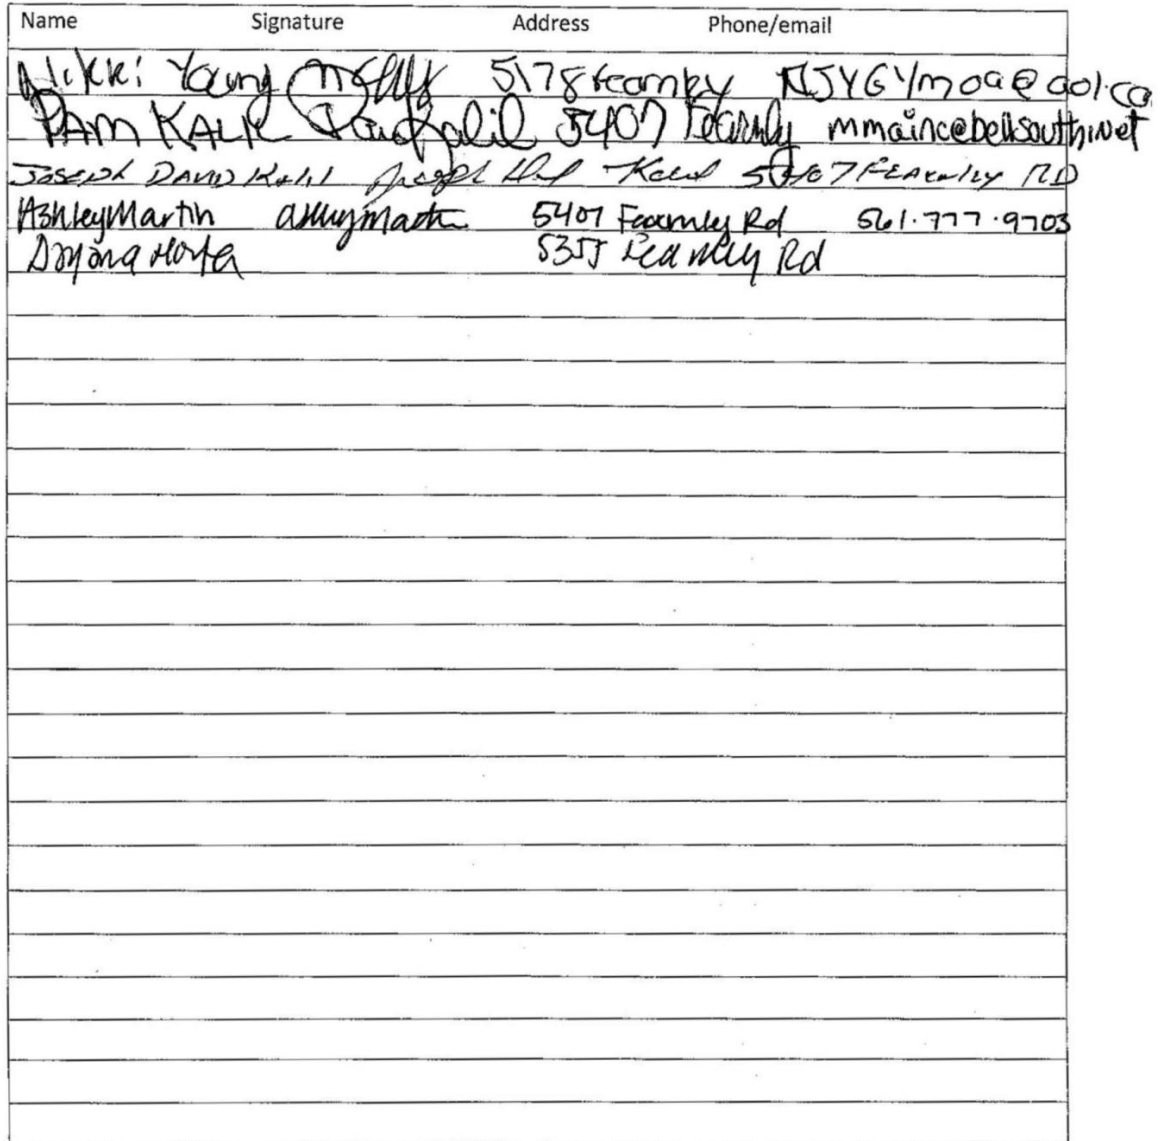 Name Signature Address Phone/email
Nikki Young 5178 Fearnley NJYGYmoa@aol.co
PAM KALIL Pam Kalil 5407 Fearnly mmainc@bellsouth.net
JOSEPH DAVID Kalil Joseph David Kalil 5407 FEARNLEY RD
Ashley Martin 5407 Fearnley Rd 561.777.9703
5355 Fearnley Rd